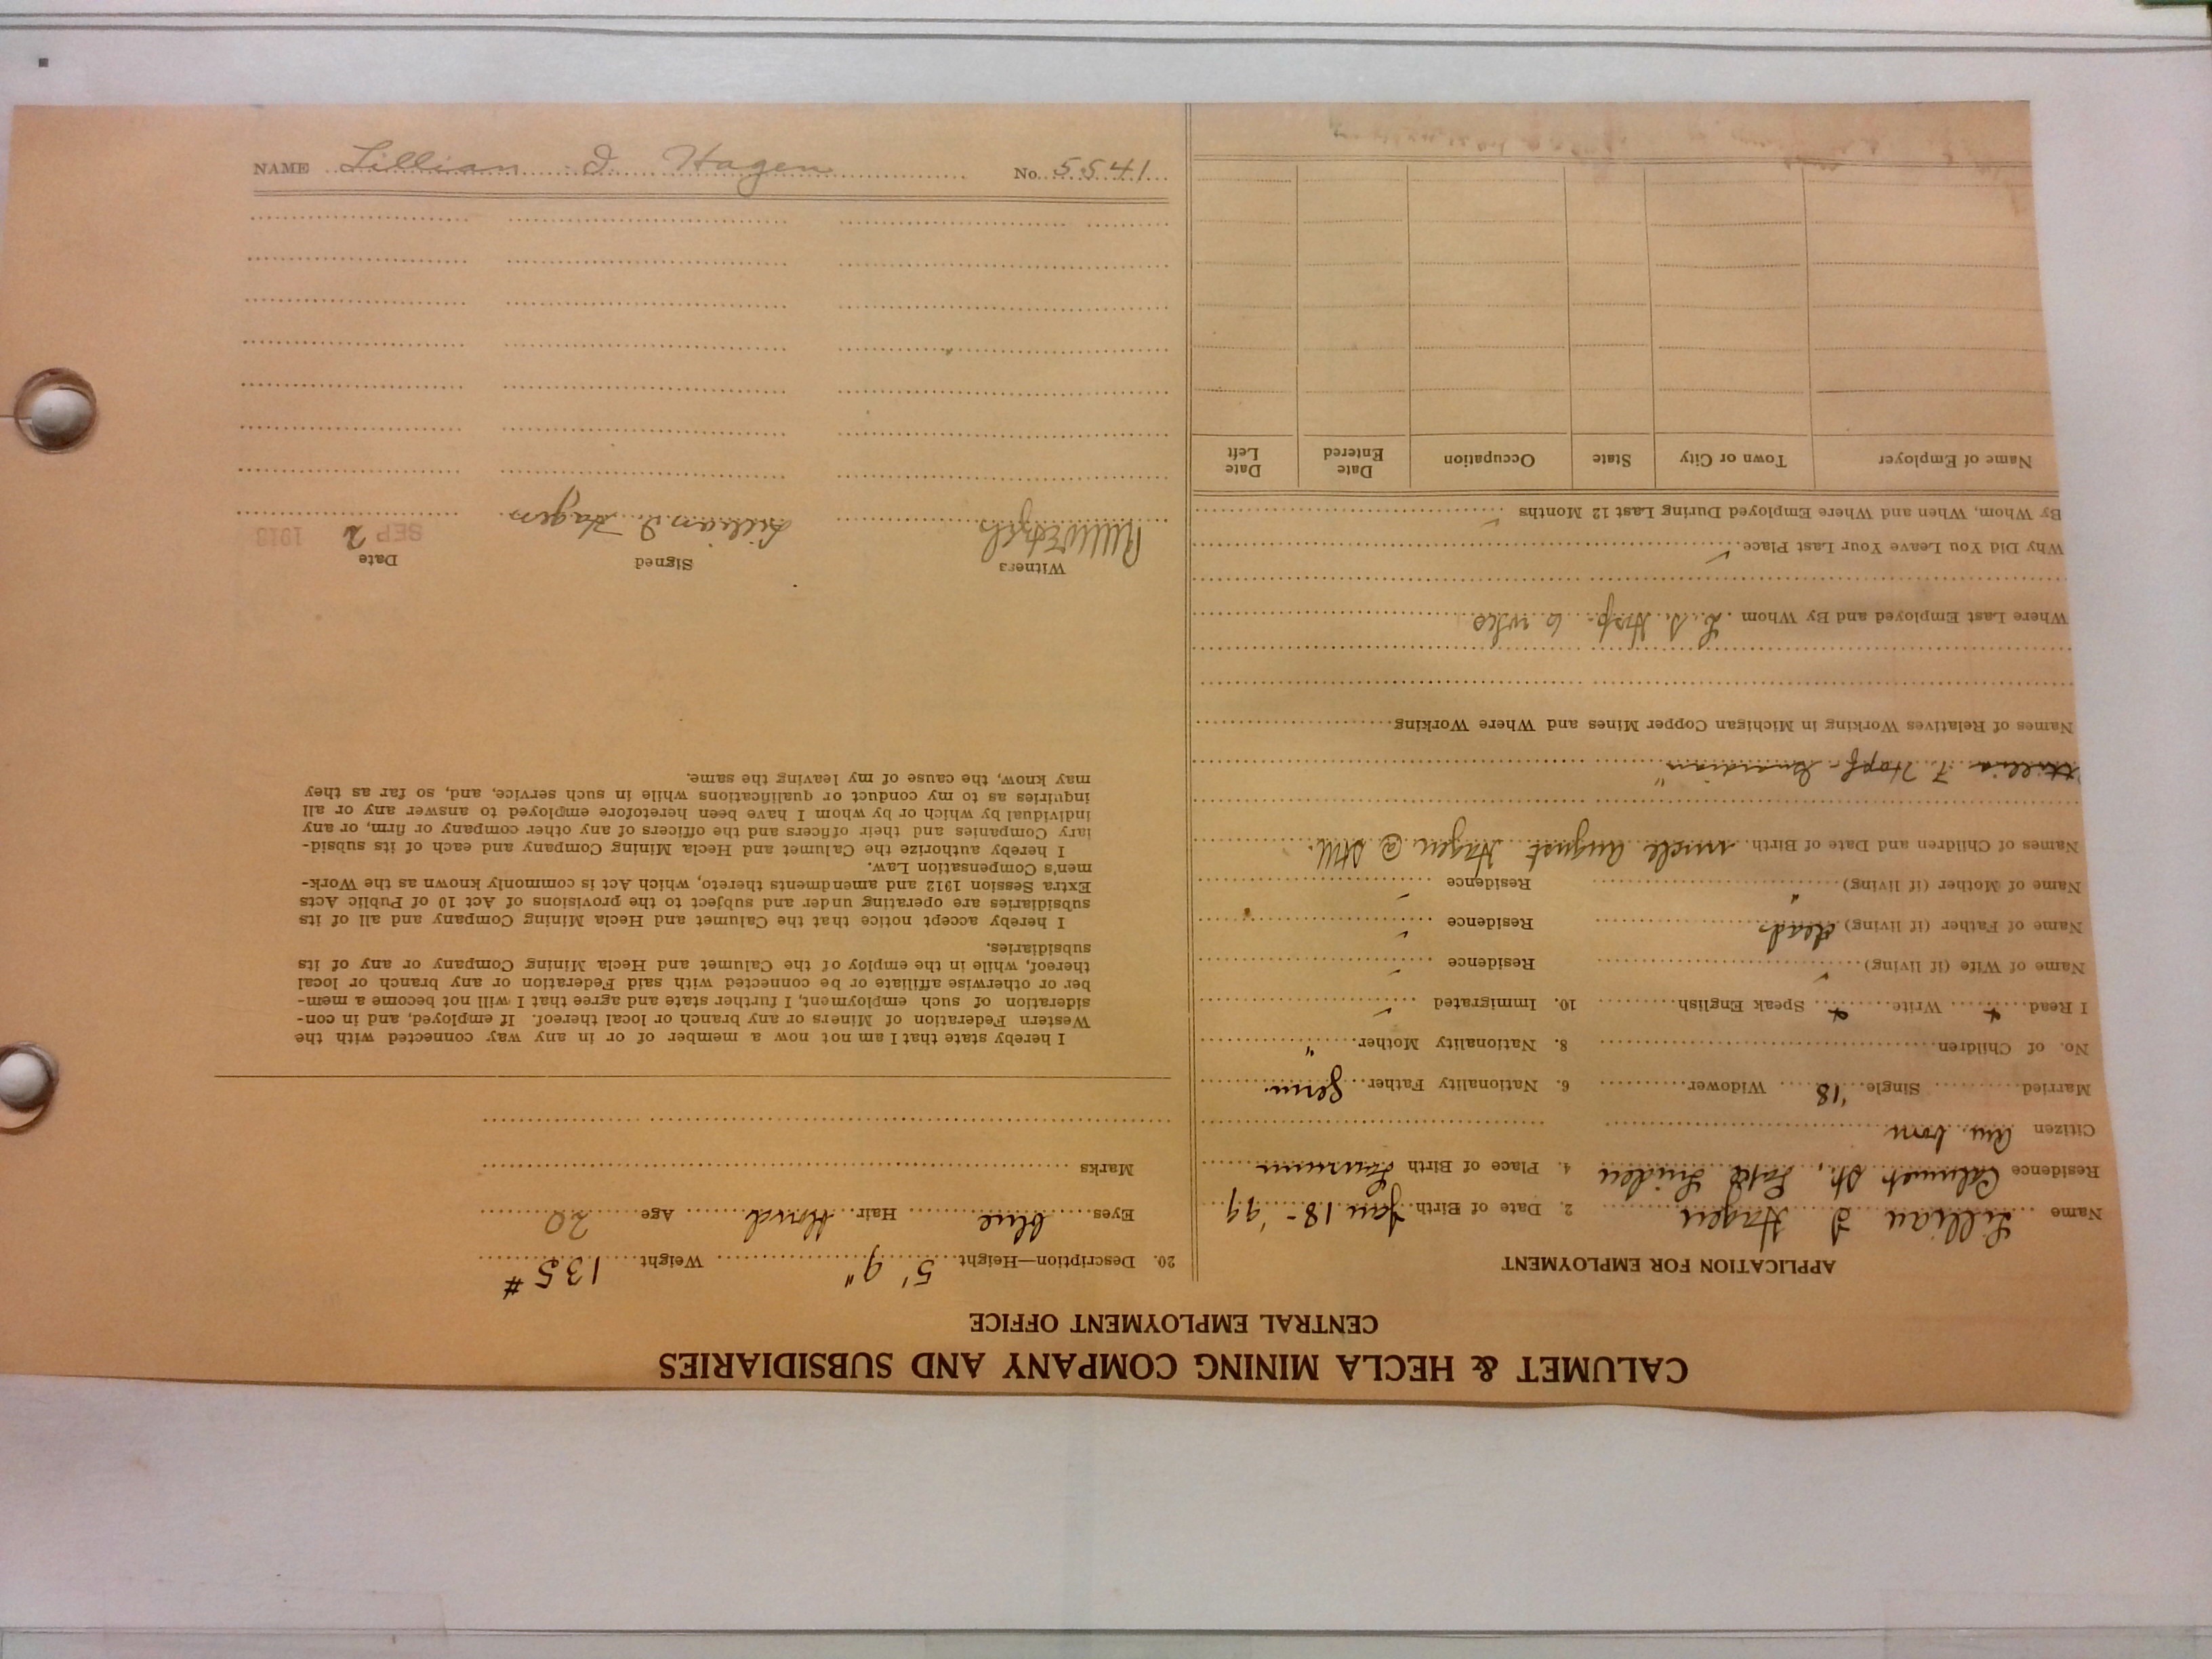 CALUMET & HECLA MINING COMPANY AND SUBSIDIARIES
CENTRAL EMPLOYMENT OFFICE
APPLICATION FOR EMPLOYMENT
Name Lillian I Hagen 2. Date of Birth Jan 18-'99
Residence Calumet St., Lake Linden 4. Place of Birth Laurium
Citizen Am. born
Married Single '18 Widower 6. Nationality Father Germ.
No. of Children 8. Nationality Mother "
I Read Write Speak English 10. Immigrated ✓
Name of Wife (if living) ✓ Residence ✓
Name of Father (if living) dead Residence ✓
Name of Mother (if living) " Residence ✓
Names of Children and Date of Birth. uncle August Hagen @
F. Hopf - Guardian"
Names of Relatives Working in Michigan Copper Mines and Where Working
Where Last Employed and By Whom Hosp. 6
Why Did You Leave Your Last Place ✓
By Whom, When and Where Employed During Last 12 Months ✓
Name of Employer Town or City State Occupation Date Entered Date Left
20. Description—Height 5' 9" Weight 135 #
Eyes blue Hair blond Age 20
Marks
I hereby state that I am not now a member of or in any way connected with the
Western Federation of Miners or any branch or local thereof. If employed, and in con-
sideration of such employment, I further state and agree that I will not become a mem-
ber or otherwise affiliate or be connected with said Federation or any branch or local
thereof, while in the employ of the Calumet and Hecla Mining Company or any of its
subsidiaries.
I hereby accept notice that the Calumet and Hecla Mining Company and all of its
subsidiaries are operating under and subject to the provisions of Act 10 of Public Acts
Extra Session 1912 and amendments thereto, which Act is commonly known as the Work-
men's Compensation Law.
I hereby authorize the Calumet and Hecla Mining Company and each of its subsid-
iary Companies and their officers and the officers of any other company or firm, or any
individual by which or by whom I have been heretofore employed to answer any or all
inquiries as to my conduct or qualifications while in such service, and, so far as they
may know, the cause of my leaving the same.
Witness Signed Date
Lillian I. Hagen SEP 2
NAME Lillian I. Hagen No. 5541